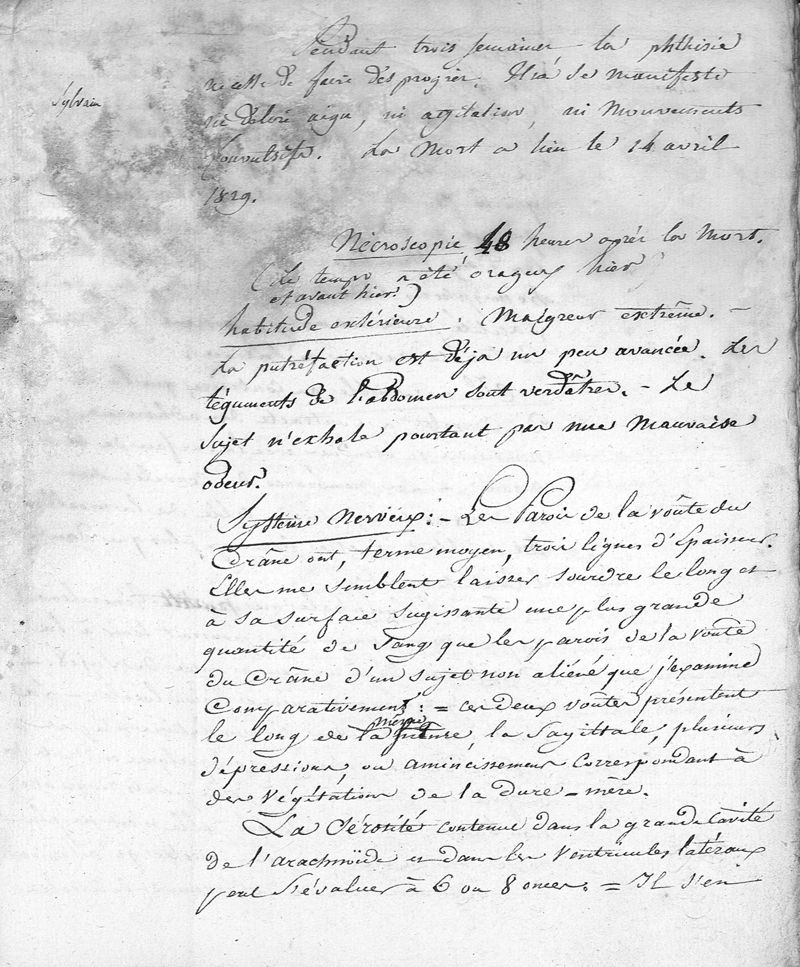 Pendant trois semaines la phthisie
ne cesse de faire des progrès. Il n'a se manifeste
ni délire aigu, ni agitation, ni mouvements
convulsifs. La mort a lieu le 14 avril
1829.
Sylvain
Nécroscopie, 48 heures après la mort.
(Le temps a été orageux hier
et avant hier.)
habitude extérieure : Maigreur extrême. -
La putréfaction est déja un peu avancée. Les
téguments de l'abdomen sont verdâtres. - Le
sujet n'exhale pourtant pas une mauvaise
odeur.
Système nerveux : - Les Parois de la voûte du
Crâne ont, terme moyen, trois lignes d'Epaisseur.
Elles me semblent laisser sourdre le long et
à sa surface une plus grande
quantité de sang que les parois de la voûte
du Crâne d'un sujet non aliéné que j'examine
Comparativement : = ces deux voûtes présentent
le long de la même, la Sagittale plusieurs
dépressions, ou amincissemens correspondant à
des végétations de la dure-mère.
La Sérosité contenue dans la grande cavité
de l'arachnoïde et dans les ventricules latéraux
peut s'évaluer à 6 ou 8 onces. = Il s'en